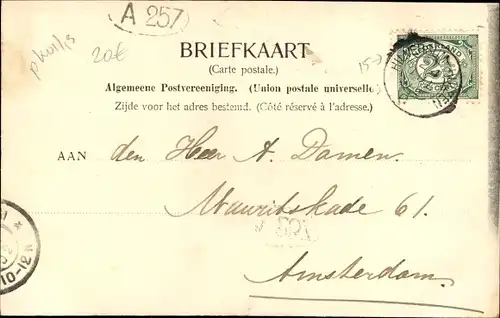 A 257
p kuil/s
20€
15-7
BRIEFKAART
(Carte postale.)
Algemeene Postvereeniging. (Union postale universelle)
Zijde voor het adres bestemd. (Côté réservé à l'adresse.)
AAN den Heer A. Damen.
Mauritskade 61.
Amsterdam.
10-12